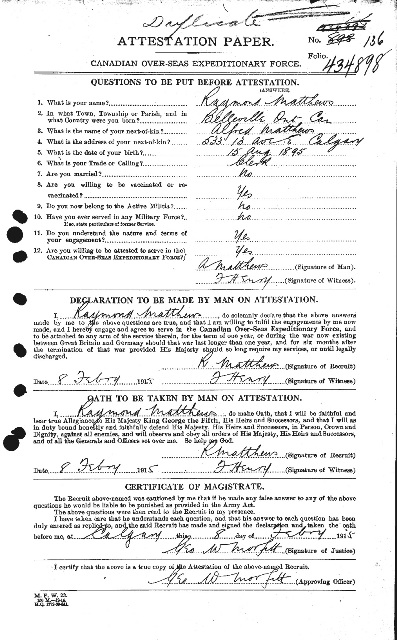 Duplicate
ATTESTATION PAPER.
No. 136
Folio.
434898
CANADIAN OVER-SEAS EXPEDITIONARY FORCE.
QUESTIONS TO BE PUT BEFORE ATTESTATION.
(ANSWERS)
1. What is your name? Raymond Matthews
2. In what Town, Township or Parish, and in what Country were you born? Belleville Ont. Can
3. What is the name of your next-of-kin? Alfred Matthews
4. What is the address of your next-of-kin? 535 13 Ave E. Calgary
5. What is the date of your birth? 15 Aug 1895
6. What is your Trade or Calling? Clerk
7. Are you married? No
8. Are you willing to be vaccinated or re-vaccinated? Yes
9. Do you now belong to the Active Militia? no
10. Have you ever served in any Military Force? no
If so, state particulars of former Service.
11. Do you understand the nature and terms of your engagement? Yes
12. Are you willing to be attested to serve in the CANADIAN OVER-SEAS EXPEDITIONARY FORCE? Yes
R Matthews (Signature of Man).
J Henry (Signature of Witness).
DECLARATION TO BE MADE BY MAN ON ATTESTATION.
I, Raymond Matthews, do solemnly declare that the above answers
made by me to the above questions are true, and that I am willing to fulfil the engagements by me now
made, and I hereby engage and agree to serve in the Canadian Over-Seas Expeditionary Force, and
to be attached to any arm of the service therein, for the term of one year, or during the war now existing
between Great Britain and Germany should that war last longer than one year, and for six months after
the termination of that war provided His Majesty should so long require my services, or until legally
discharged.
R Matthews (Signature of Recruit)
Date 8 Febry 1915 J Henry (Signature of Witness)
OATH TO BE TAKEN BY MAN ON ATTESTATION.
I, Raymond Matthews, do make Oath, that I will be faithful and
bear true Allegiance to His Majesty King George the Fifth, His Heirs and Successors, and that I will as
in duty bound honestly and faithfully defend His Majesty, His Heirs and Successors, in Person, Crown and
Dignity, against all enemies, and will observe and obey all orders of His Majesty, His Heirs and Successors,
and of all the Generals and Officers set over me. So help me God.
R Matthews (Signature of Recruit)
Date 8 Febry 1915 J Henry (Signature of Witness)
CERTIFICATE OF MAGISTRATE.
The Recruit above-named was cautioned by me that if he made any false answer to any of the above
questions he would be liable to be punished as provided in the Army Act.
The above questions were then read to the Recruit in my presence.
I have taken care that he understands each question, and that his answer to each question has been
duly entered as replied to, and the said Recruit has made and signed the declaration and taken the oath
before me, at Calgary this 8 day of Febry 1915
Geo W Morfitt (Signature of Justice)
I certify that the above is a true copy of the Attestation of the above-named Recruit.
Geo W Morfitt (Approving Officer)
M. F. W. 23.